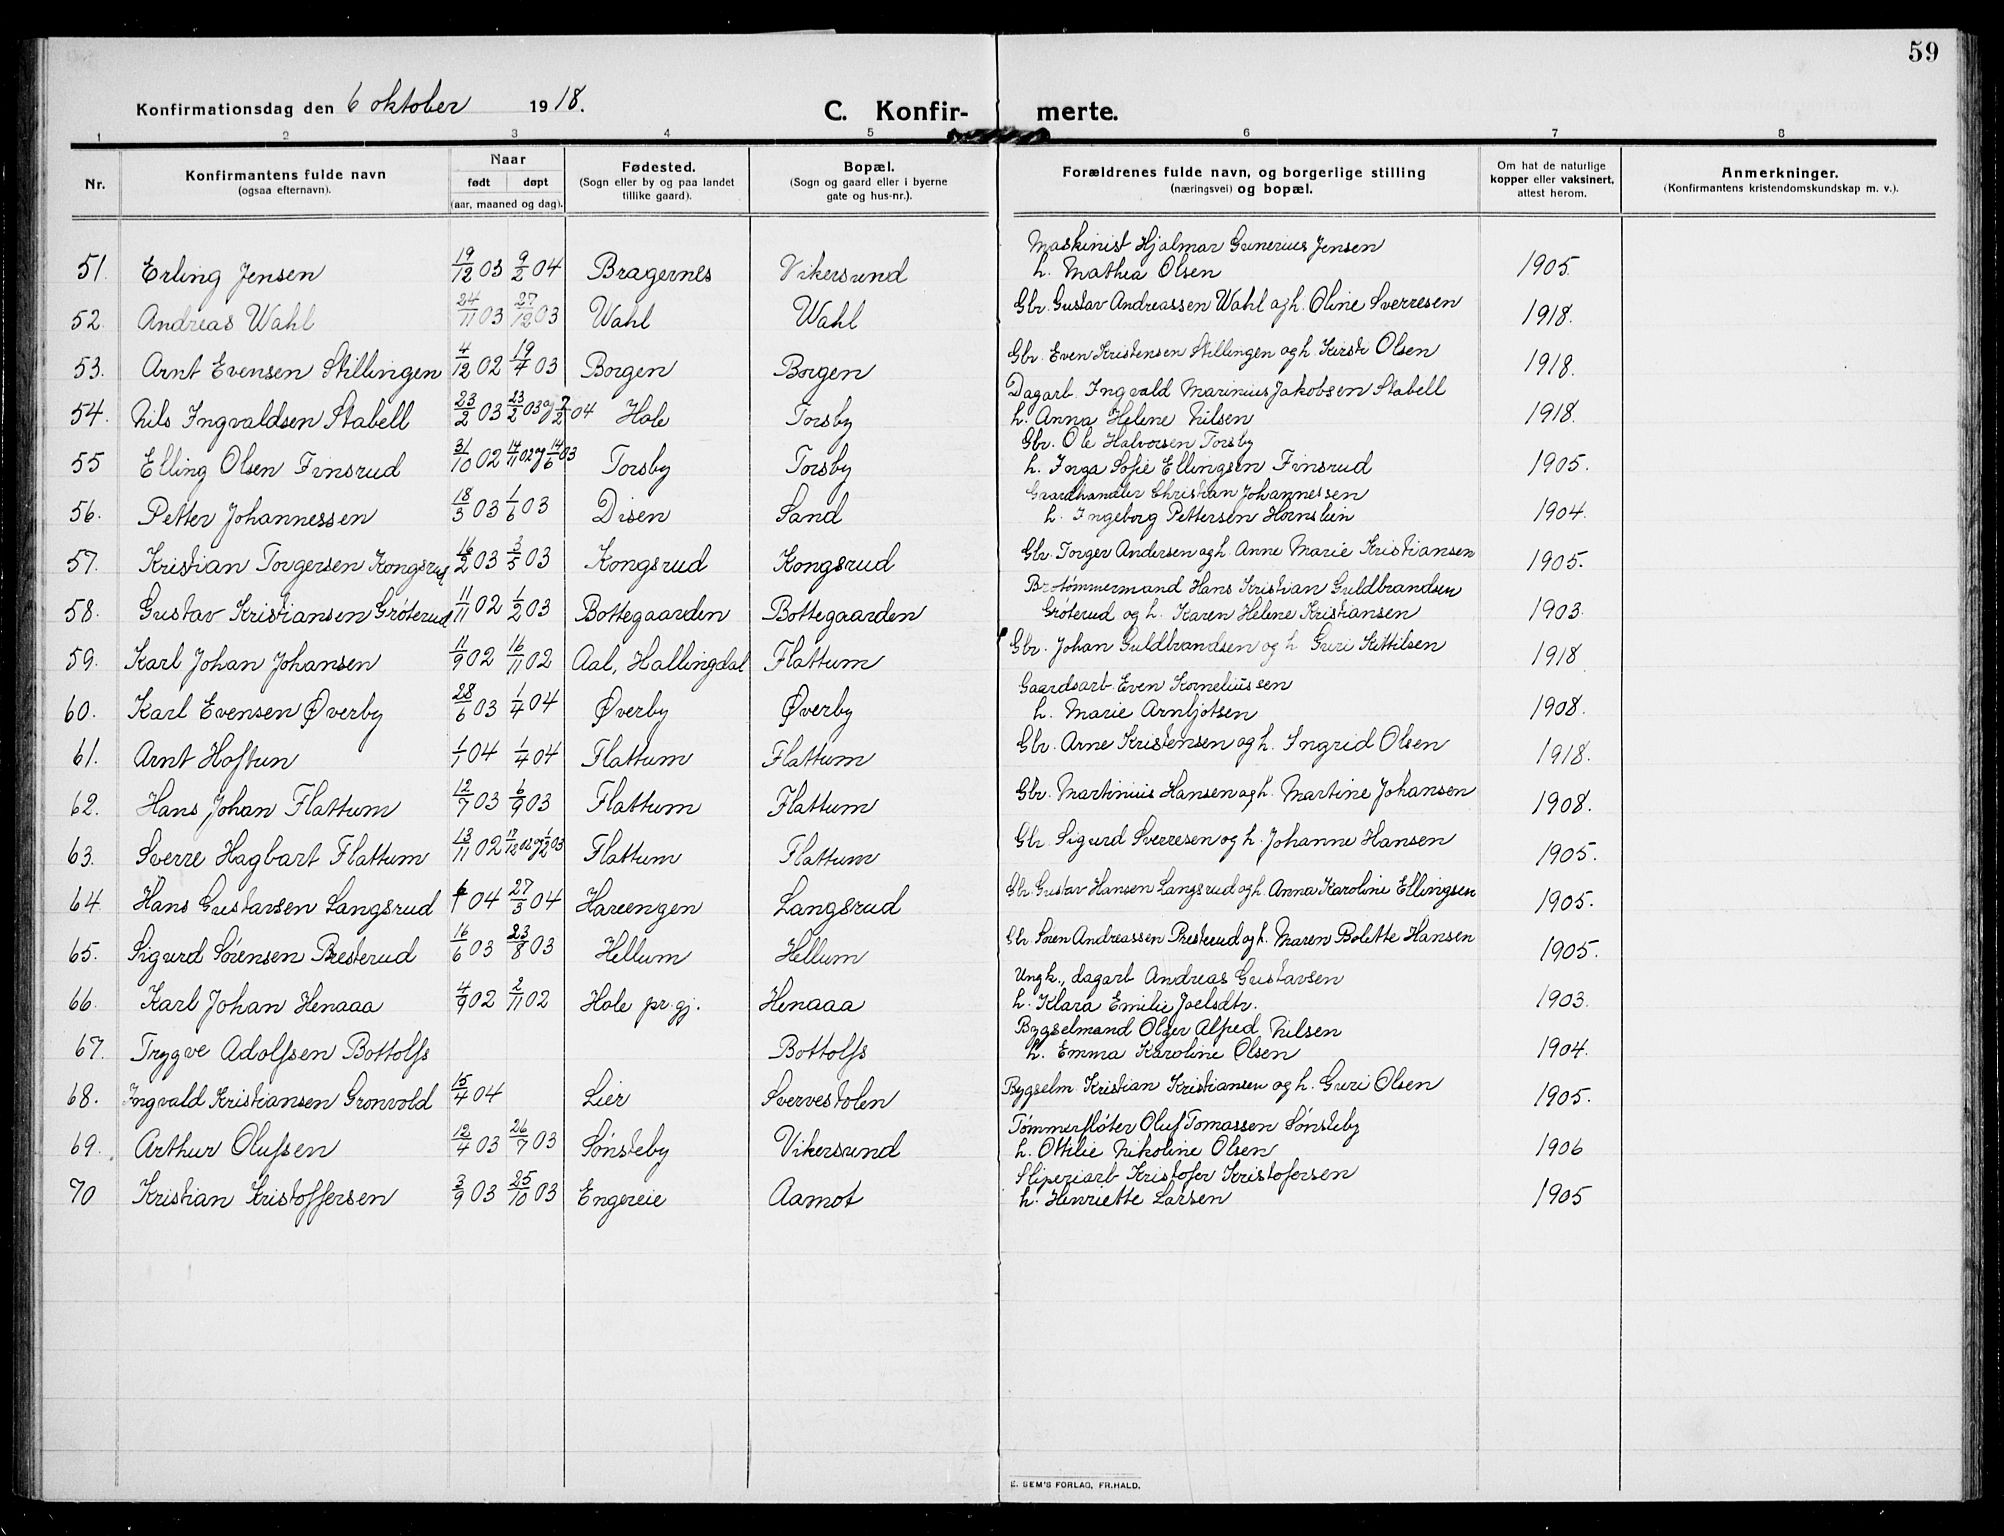 59
Konfirmationsdag den 6 oktober 1918.
C. Konfir- merte.
1 2 3 4 5 6 7 8
Nr. Konfirmantens fulde navn (ogsaa efternavn). Naar født døpt (aar, maaned og dag). Fødested. (Sogn eller by og paa landet tillike gaard). Bopæl. (Sogn og gaard eller i byerne gate og hus-nr.). Forældrenes fulde navn, og borgerlige stilling (næringsvei) og bopæl. Om hat de naturlige kopper eller vaksinert, attest herom. Anmerkninger. (Konfirmantens kristendomskundskap m. v.).
51. Erling Jensen 19/12 03 9/2 04 Bragernes Vikersund Maskinist Hjalmar Gunerius Jensen
h. Mathea Olsen 1905.
52. Andreas Wahl 24/11 03 27/12 03 Wahl Wahl Gbr. Gustav Andreassen Wahl og h. Oline Sverresen 1918.
53. Arnt Evensen Stillingen 4/12 02 19/4 03 Borgen Borgen Gbr. Even Kristensen Stillingen og h. Kirsti Olsen 1918.
54. Nils Ingvaldsen Stabell 23/2 03 23/2 03 og 7/2 04 Hole Torsby Dagarb. Ingvald Marinius Jakobsen Stabell
h. Anna Helene Nilsen 1918.
55 Elling Olsen Finsrud 31/10 02 14/11 02 og 14/6 03 Torsby Torsby Gbr. Ole Halvorsen Torsby
h. Inga Sofie Ellingsen Finsrud 1905.
56. Petter Johannessen 18/3 03 1/6 03 Disen Sand Gaardhandler Christian Johannessen
h. Ingeborg Pettersen Hornslien 1904.
57. Kristian Torgersen Kongsrud 16/2 03 3/5 03 Kongsrud Kongsrud Gbr. Torger Andersen og h. Anne Marie Kristiansen 1905.
58. Gustav Kristiansen Grøterud 11/11 02 1/2 03 Bottegaarden Bottegaarden Brotømmermand Hans Kristian Guldbrandsen
Grøterud og h. Karen Helene Kristiansen 1903.
59. Karl Johan Johansen 11/9 02 16/11 02 Aal, Hallingdal Flattum Gbr. Johan Guldbrandsen og h. Guri Kittilsen 1918
60. Karl Evensen Øverby 28/6 03 1/4 04 Øverby Øverby Gaardsarb. Even Korneliussen
h. Marie Arnljotsen 1908.
61. Arnt Hoftun 1/1 04 1/4 04 Flattum Flattum Gbr. Arne Kristensen og h. Ingrid Olsen 1918.
62. Hans Johan Flattum 12/7 03 6/9 03 Flattum Flattum Gbr. Martinius Hansen og h. Martine Johansen 1908.
63. Sverre Hagbart Flattum 13/11 02 17/12 02 og 1/2 03 Flattum Flattum Gbr Sigurd Sverresen og h. Johanne Hansen 1905.
64. Hans Gustavsen Langsrud 04 27/3 04 Hareengen Langsrud Gbr. Gustav Hansen Langsrud og h. Anna Karoline Ellingsen 1905.
65. Sigurd Sørensen Presterud 16/6 03 23/8 03 Hellum Hellum Gbr. Søren Andreassen Presterud og h. Maren Bolette Hansen 1905.
66. Karl Johan Henaaa 4/9 02 2/11 02 Hole pr.gj. Henaaa Ungk., dagarb Andreas Gustavsen
h. Klara Emilie Joelsdtr. 1903.
67. Trygve Adolfsen Bottolfs Bottolfs Bygselmand Olger Alfred Nilsen
h. Emma Karoline Olsen 1904.
68. Ingvald Kristiansen Gronvold 15/4 04 Lier Svervestolen Bygselm. Kristian Kristiansen og h. Guri Olsen 1905.
69. Arthur Olufsen 12/4 03 26/7 03 Sønsteby Vikersund Tømmerfløter Oluf Tomassen Sønsteby
h. Ottilie Nikoline Olsen 1906
70 Kristian Kristoffersen 3/9 03 25/10 03 Engereie Aamot Sliperiarb Kristofer Kristofersen
h. Henriette Larsen 1905
E. SEM'S FORLAG, FR.HALD.